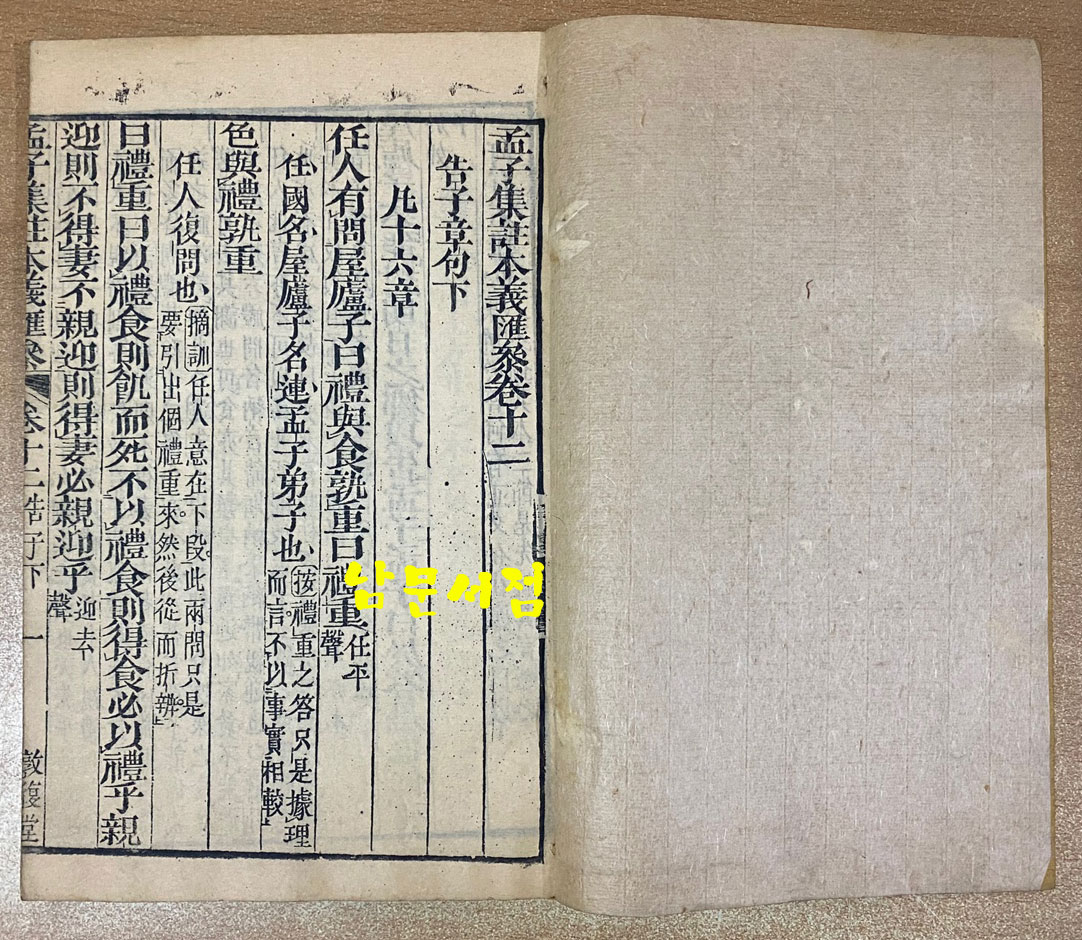 孟子集註本義匯叅卷十二
告子章句下
凡十六章
任人有問屋廬子曰禮與食孰重曰禮重任平聲
任國名屋廬子名連孟子弟子也按禮重之答只是據理而言不以事實相較
色與禮孰重
任人復問也摘訓任人意在下段此兩問只是要引出個禮重來然後從而折辨
曰禮重曰以禮食則飢而死不以禮食則得食必以禮乎親
迎則不得妻不親迎則得妻必親迎乎迎去聲
孟子集註本義匯叅 卷十二 告子下 一 敦復堂
남문서점